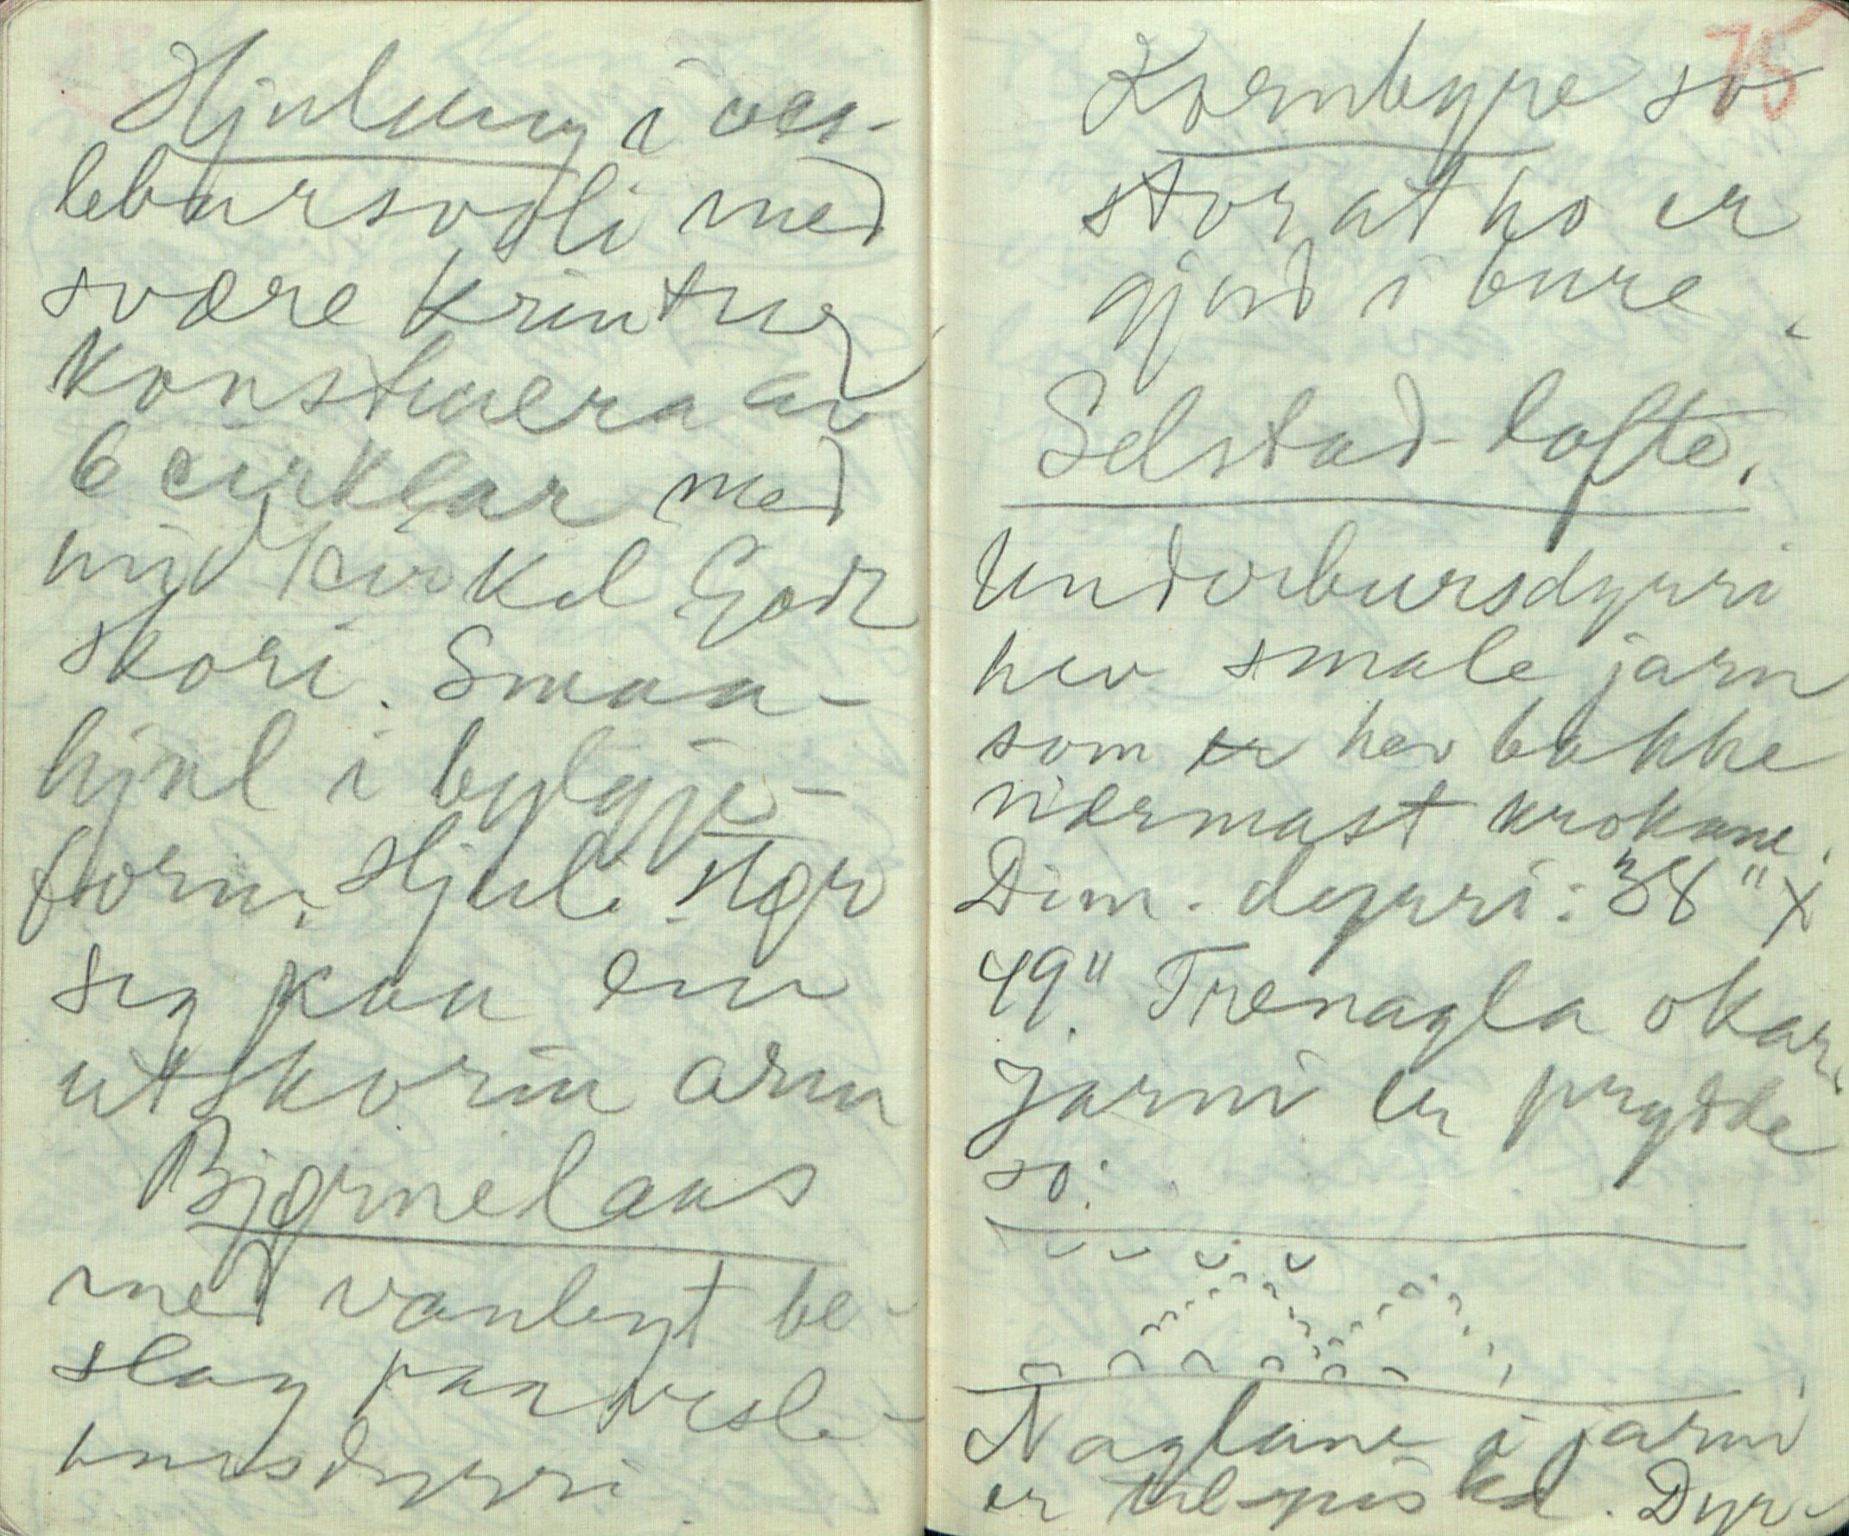 Hjulung i ves-
lebursvoli med
svære krintur
konstruera av
6 cirklar med
midtcirkel. God
skori. Smaa-
hjul i bylgje-
form. Hjuli stør
seg paa ein
utskorin arm
Bjørnelaas
med vanlegt be-
slag paa vesle-
bursdyrri.
75
Kornbyre so
stor at ho er
gjord i bure.
Selstad-lofte.
Underbursdyrri
hev smale jarn
som er hev bakke
nærmast krokane.
Dim. dyrri: 38" x
49". Trenagla okar.
Jarni er prydde
so:
Naglane i jarni
er tilpiska. Dyr-